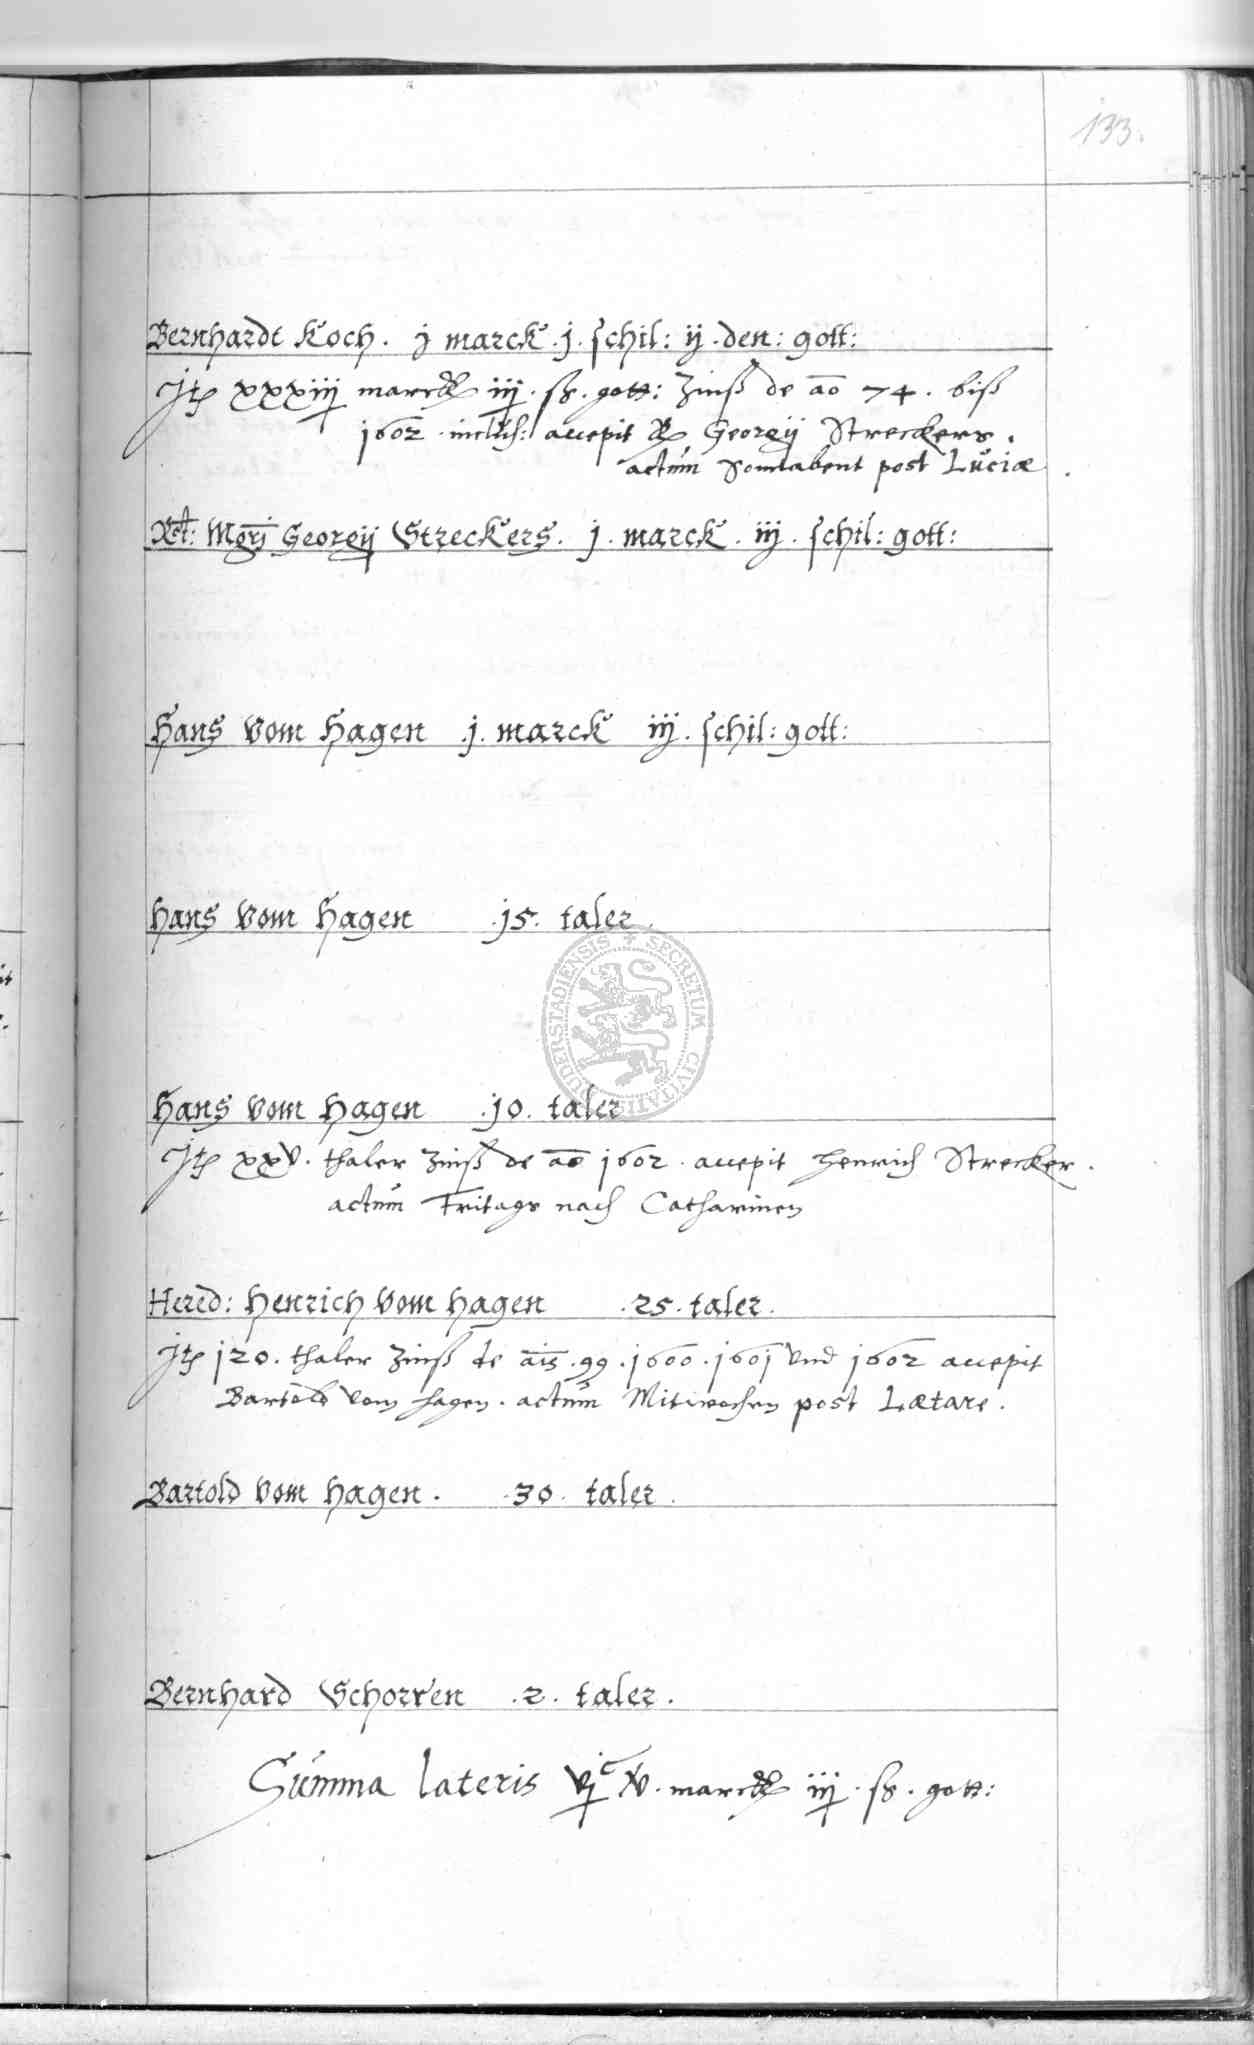 133.
Bernhardt Koch. j marck. j. schil: ij. den: gott:
Jtem xxxiij marck iij. ß. gott: Zinß de ao 74. biß
1602. inclus: accepit Georgij Streckers.
actum Sonnabent post Luciæ
Rct: Mgri Georgij Streckers. j. marck. iij. schil: gott:
Hans vom Hagen j. marck iij. schil: gott:
Hans vom Hagen .15. taler.
DUDERSTADIENSIS SECRETUM CIVITATIS
Hans vom Hagen .10. taler
Jtem xxv. thaler Zinß de ao 1602. accepit Henrich Strecker.
actum Fritags nach Catharinen
Hered: Henrich vom Hagen .25. taler.
Jtem 120. thaler Zinß de ais .99. 1600. 1601 vnd 1602 accepit
Bartold vom Hagen. actum Mitwochen post Lætare.
Bartold vom Hagen. .30. taler.
Bernhard Schorren .2. taler.
Summa lateris vjc xv. marck iij. ß. gott: